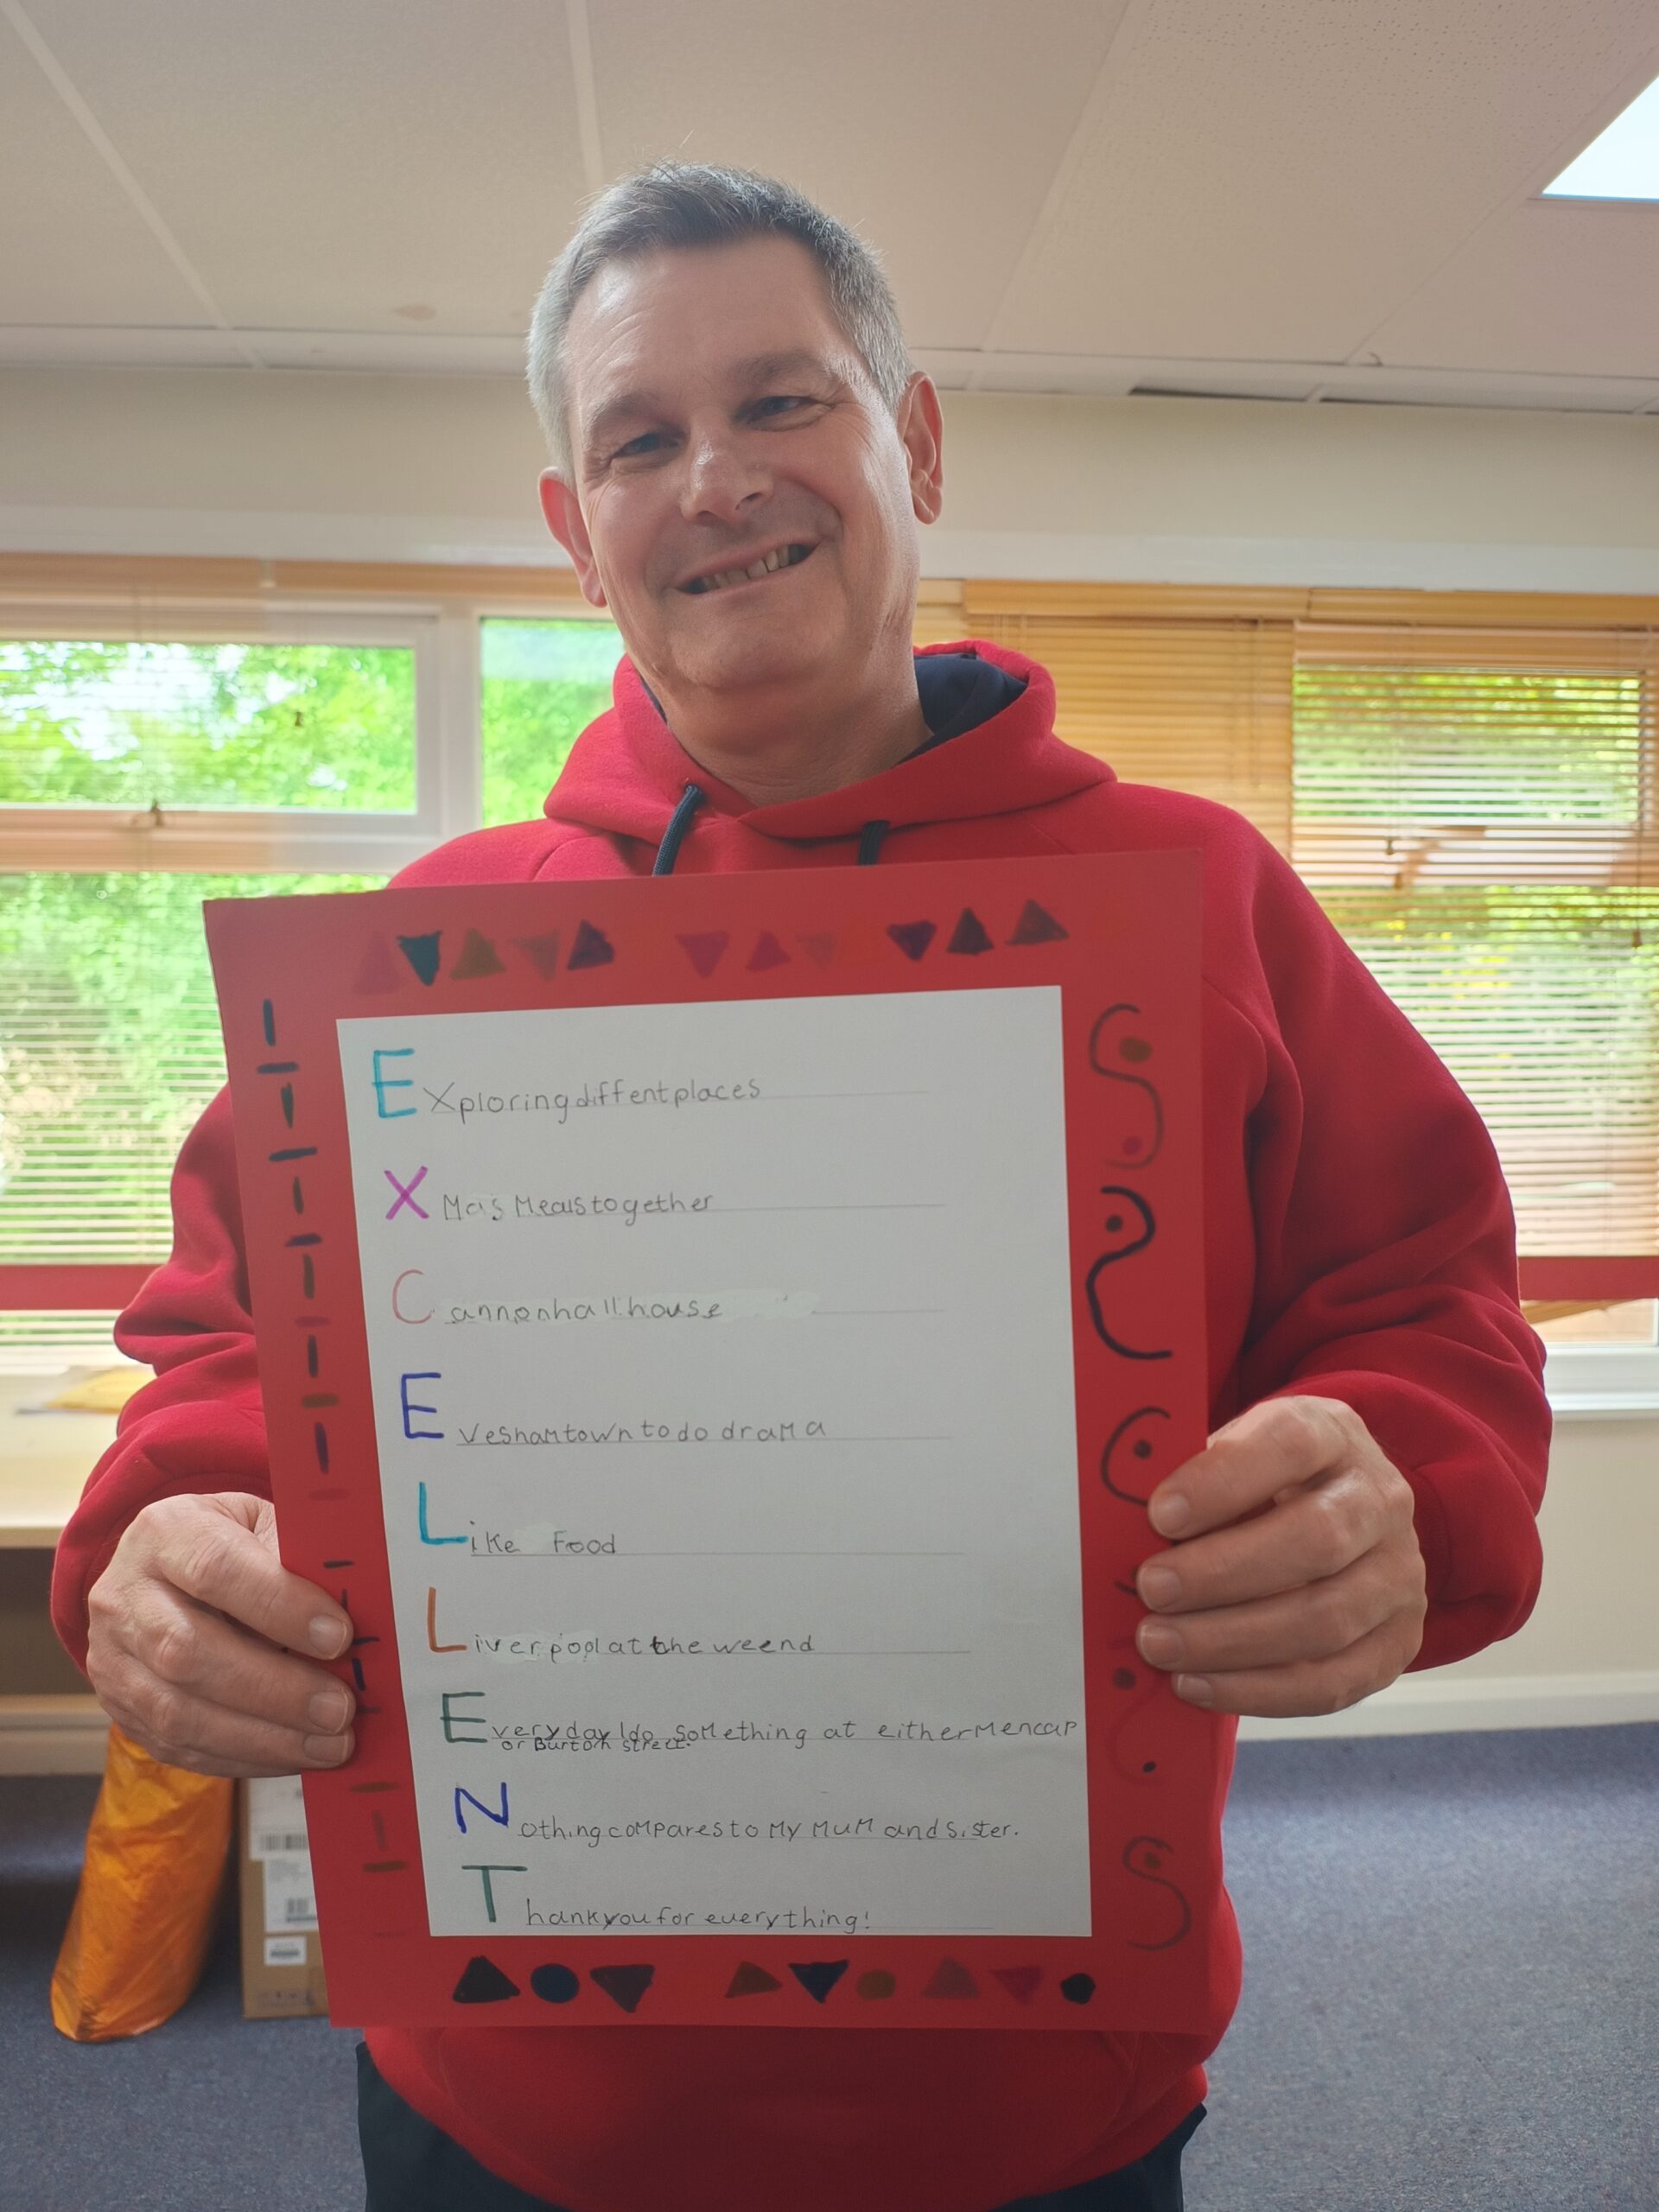 Exploring diffent places
Xmas Meals together
Cannonhall house
Evesham town to do drama
Like Food
Liverpool at the weend
Everyday I do something at either Mencap
or Burton street.
Nothing compares to My MuM and sister.
Thankyou for everything!